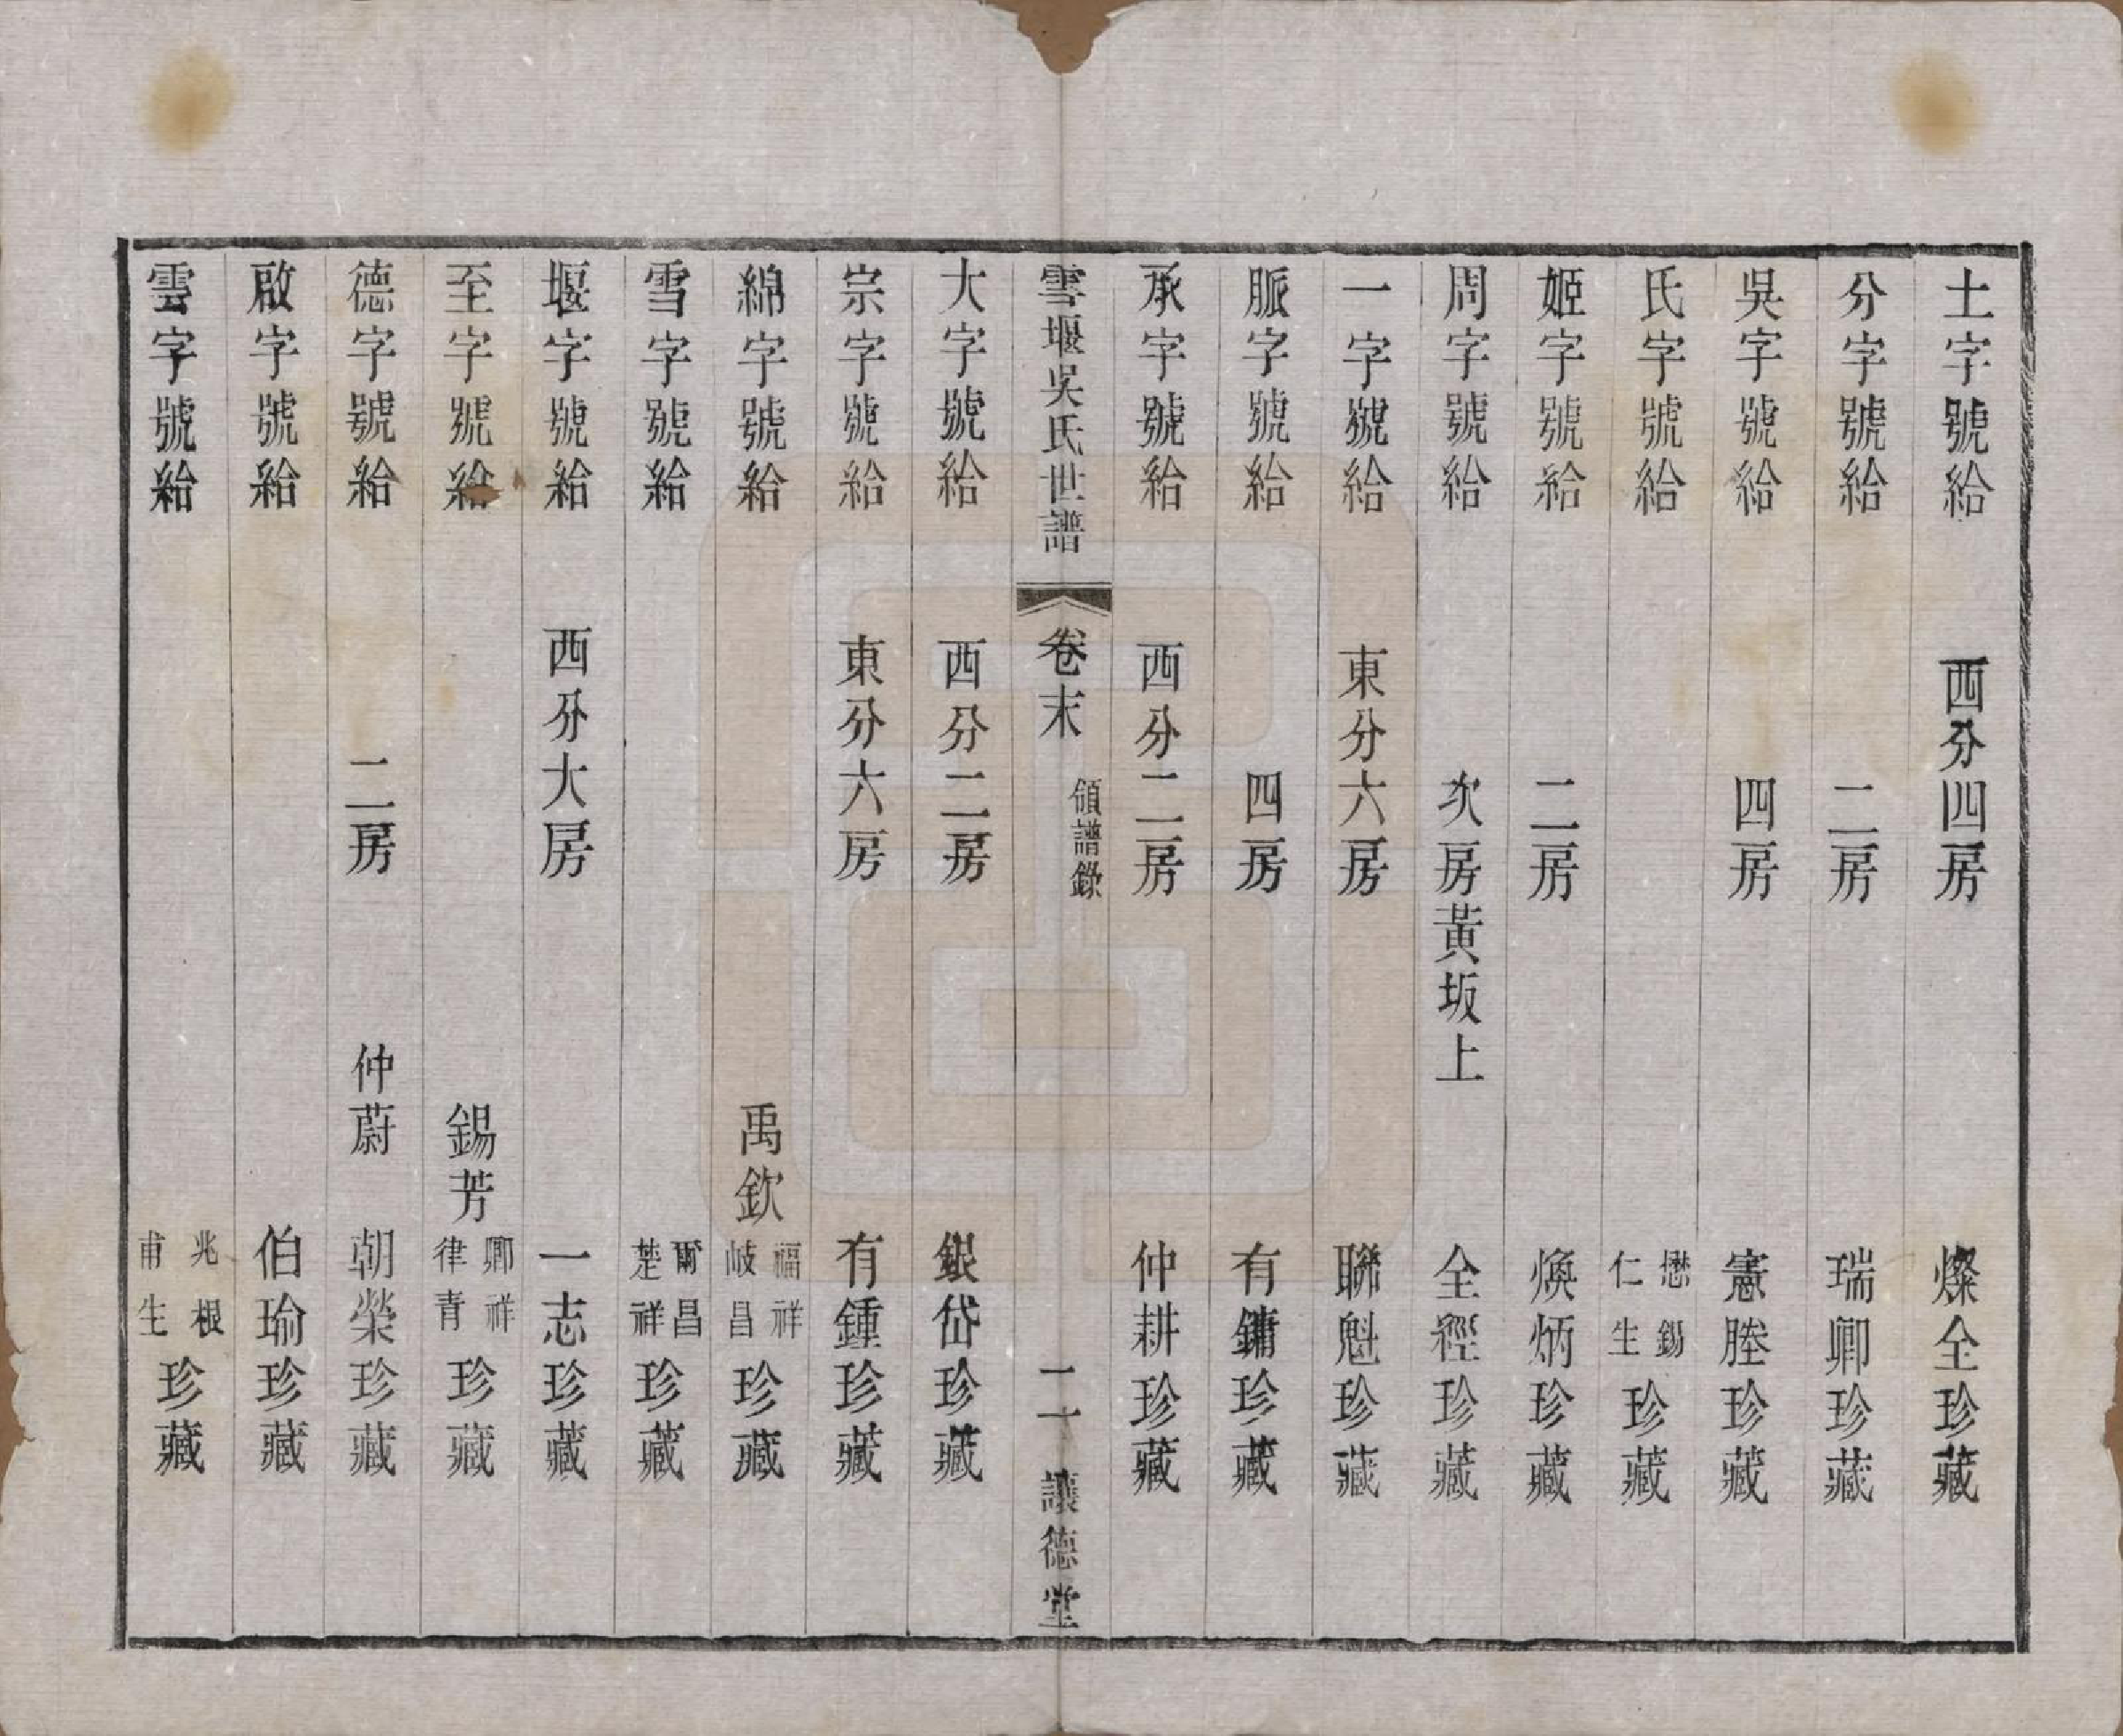 土字號給 西分四房 燦全珍藏
分字號給 二房 瑞卿珍藏
吳字號給 四房 憲塍珍藏
氏字號給 懋錫仁生珍藏
姬字號給 二房 煥炳珍藏
周字號給 次房黃坂上 全經珍藏
一字號給 東分六房 聯魁珍藏
脈字號給 四房 有鏞珍藏
承字號給 西分二房 仲耕珍藏
雲堰吳氏世譜 卷末 領譜錄 二 讓德堂
大字號給 西分二房 銀岱珍藏
宗字號給 東分六房 有鍾珍藏
綿字號給 禹欽 福祥岐昌珍藏
雪字號給 爾昌楚祥珍藏
堰字號給 西分大房 一志珍藏
至字號給 錫芳 卿祥律青珍藏
德字號給 二房 仲蔚 朝榮珍藏
啟字號給 伯瑜珍藏
雲字號給 兆根甫生珍藏